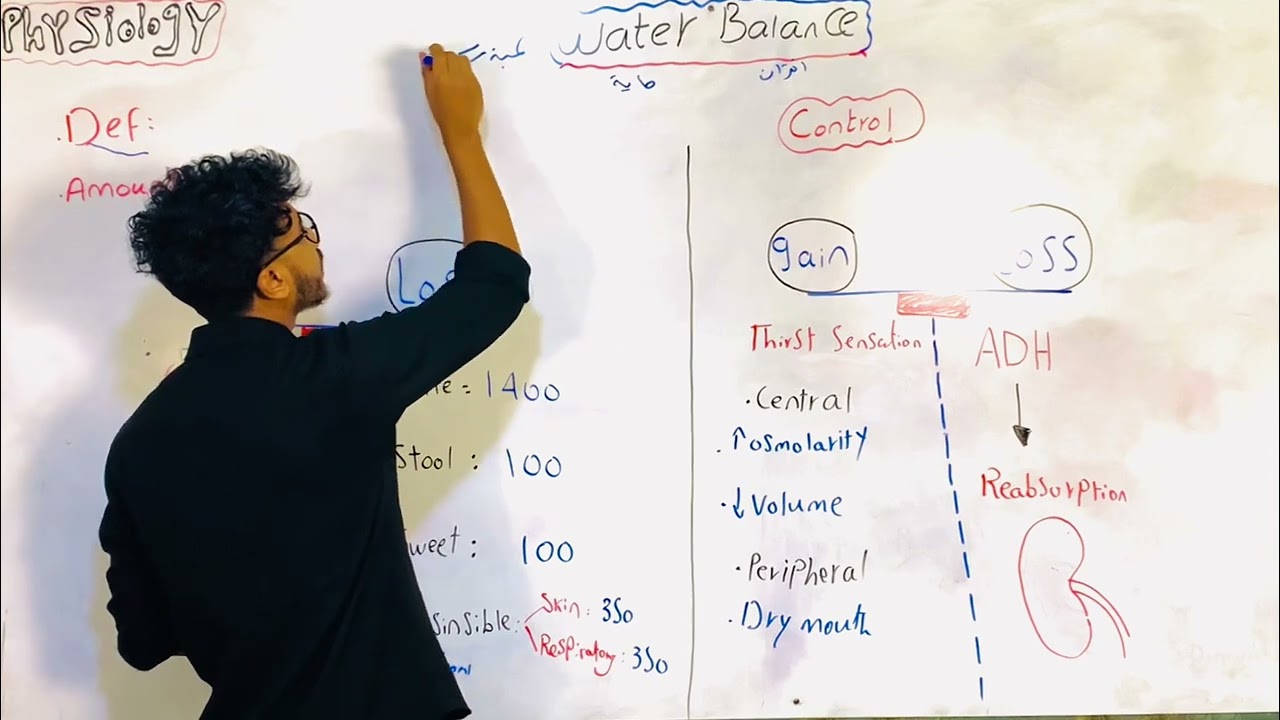 PHYSiologY
Water Balance
Def:
Amou
Lo
1400
Stool : 100
weet : 100
sinsible: Skin : 350
Respiratory : 350
Control
gain
oss
Thirst Sensation
. Central
. ↑ osmolarity
. ↓ Volume
. Peripheral
. Dry mouth
ADH
Reabsorption